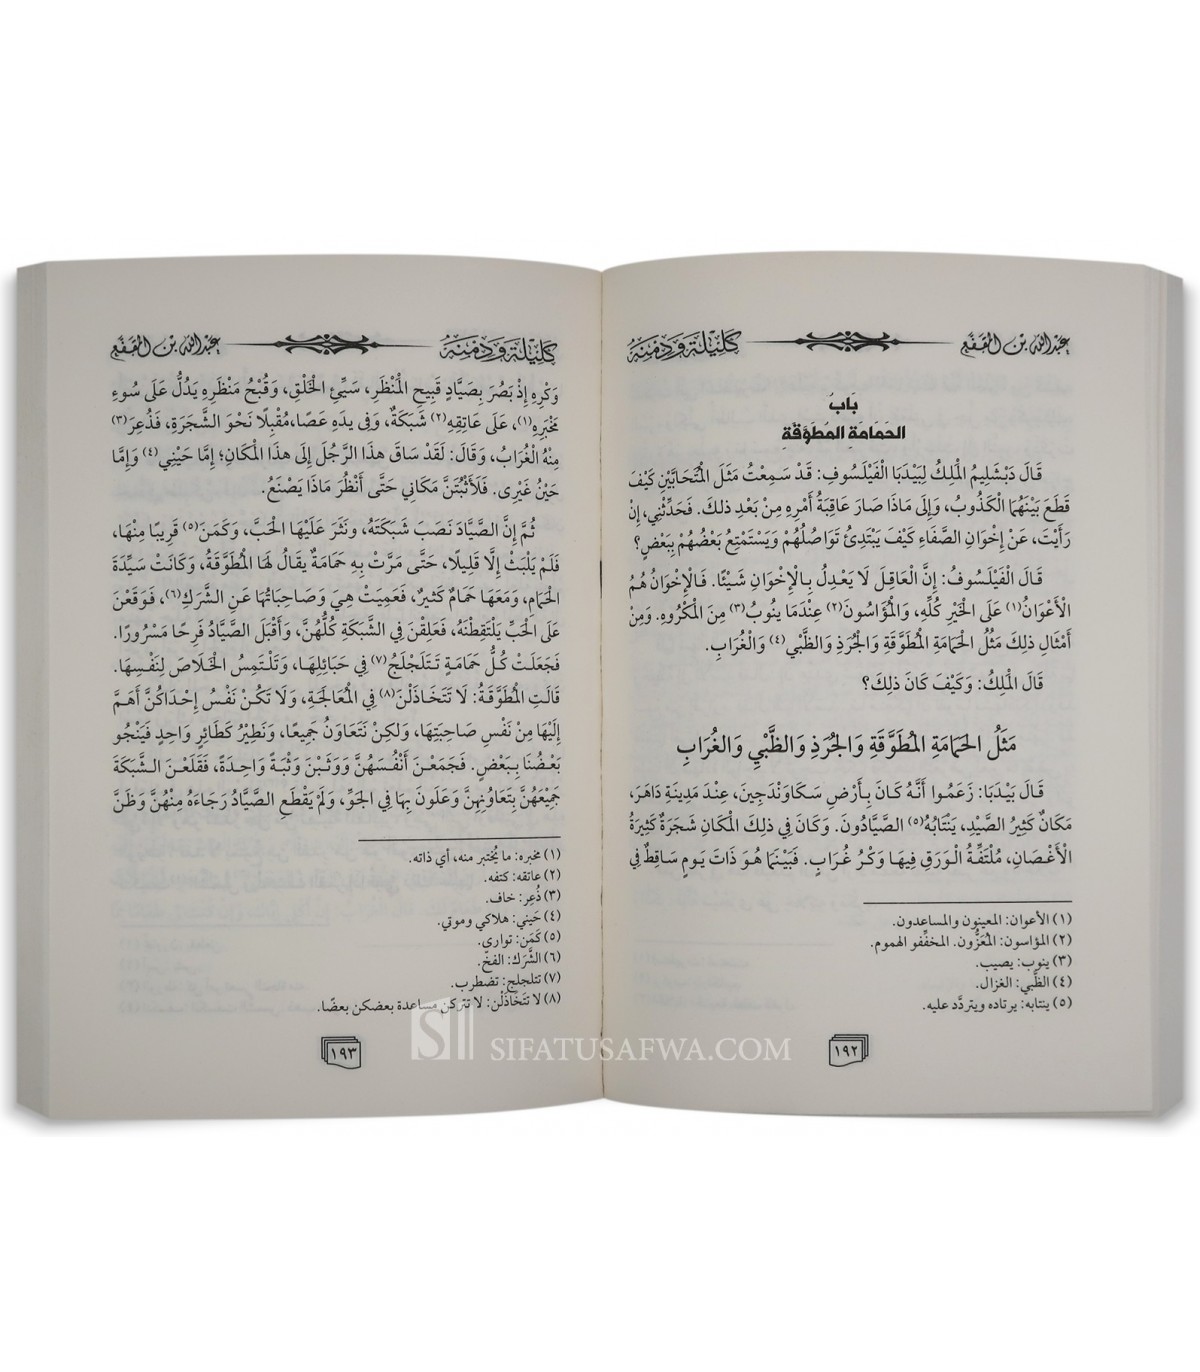 عبد الله بن المقفع كليلة ودمنة
بَابُ
الحَمَامَةِ المُطَوَّقَةِ
قَالَ دَبْشَلِيمُ الْمَلِكُ لِبَيْدَبَا الْفَيْلَسُوفِ: قَدْ سَمِعْتُ مَثَلَ الْمُتَحَابَّيْنِ كَيْفَ
قَطَعَ بَيْنَهُمَا الْكَذُوبُ، وَإِلَى مَاذَا صَارَ عَاقِبَةُ أَمْرِهِ مِنْ بَعْدِ ذلِكَ. فَحَدِّثْنِي، إِنْ
رَأَيْتَ، عَنْ إِخْوَانِ الصَّفَاءِ كَيْفَ يَبْتَدِئُ تَوَاصُلُهُمْ وَيَسْتَمْتِعُ بَعْضُهُمْ بِبَعْضٍ؟
قَالَ الْفَيْلَسُوفُ: إِنَّ الْعَاقِلَ لَا يَعْدِلُ بِالْإِخْوَانِ شَيْئًا. فَالْإِخْوَانُ هُمُ
الْأَعْوَانُ(١) عَلَى الْخَيْرِ كُلِّهِ، وَالْمُؤَاسُونَ(٢) عِنْدَمَا يَنُوبُ(٣) مِنَ الْمَكْرُوهِ. وَمِنْ
أَمْثَالِ ذلِكَ مَثَلُ الْحَمَامَةِ الْمُطَوَّقَةِ وَالْجُرَذِ وَالظَّبْيِ(٤) وَالْغُرَابِ.
قَالَ الْمَلِكُ: وَكَيْفَ كَانَ ذلِكَ؟
مَثَلُ الْحَمَامَةِ الْمُطَوَّقَةِ وَالْجُرَذِ وَالظَّبْيِ وَالْغُرَابِ
قَالَ بَيْدَبَا: زَعَمُوا أَنَّهُ كَانَ بِأَرْضِ سَكَاوَنْدَجِينَ، عِنْدَ مَدِينَةِ دَاهَرَ،
مَكَانٌ كَثِيرُ الصَّيْدِ، يَنْتَابُهُ(٥) الصَّيَّادُونَ. وَكَانَ فِي ذلِكَ الْمَكَانِ شَجَرَةٌ كَثِيرَةُ
الْأَغْصَانِ، مُلْتَفَّةُ الْوَرَقِ فِيهَا وَكْرُ غُرَابٍ. فَبَيْنَمَا هُوَ ذَاتَ يَوْمٍ سَاقِطٌ فِي
(١) الأعوان: المعينون والمساعدون.
(٢) المؤاسون: المُعَزُّون. المخفِّفو الهموم.
(٣) ينوب: يصيب.
(٤) الظَّبي: الغزال.
(٥) ينتابه: يرتاده ويتردَّد عليه.
١٩٢
عبد الله بن المقفع كليلة ودمنة
وَكْرِهِ إِذْ بَصُرَ بِصَيَّادٍ قَبِيحِ الْمَنْظَرِ، سَيِّئِ الْخَلْقِ، وَقُبْحُ مَنْظَرِهِ يَدُلُّ عَلَى سُوءِ
مَخْبَرِهِ(١)، عَلَى عَاتِقِهِ(٢) شَبَكَةٌ، وَفِى يدَهِ عَصًا، مُقْبِلًا نَحْوَ الشَّجَرَةِ، فَذُعِرَ(٣)
مِنْهُ الْغُرَابُ، وَقَالَ: لَقَدْ سَاقَ هذَا الرَّجُلَ إِلَى هذَا الْمَكَانِ؛ إِمَّا حَيْنِي(٤) وَإِمَّا
حَيْنُ غَيْرِى. فَلَأَثْبُتَنَّ مَكَانِي حَتَّى أَنْظُرَ مَاذَا يَصْنَعُ.
ثُمَّ إِنَّ الصَّيَّادَ نَصَبَ شَبَكَتَهُ، وَنَثَرَ عَلَيْهَا الْحَبَّ، وَكَمَنَ(٥) قَرِيبًا مِنْهَا،
فَلَمْ يَلْبَثْ إِلَّا قَلِيلًا، حَتَّى مَرَّتْ بِهِ حَمَامَةٌ يقَالُ لَهَا الْمُطَوَّقَةُ، وَكَانَتْ سَيِّدَةَ
الْحَمَامِ، وَمَعَهَا حَمَامٌ كَثيرٌ، فَعَمِيَتْ هِيَ وَصَاحِبَاتُهَا عَنِ الشَّرَكِ(٦)، فَوَقَعْنَ
عَلَى الْحَبِّ يَلْتَقِطْنَهُ، فَعَلِقْنَ فِي الشَّبَكَةِ كُلُّهُنَّ، وَأَقْبَلَ الصَّيَّادُ فَرِحًا مَسْرُورًا.
فَجَعَلَتْ كُلُّ حَمَامَةٍ تَتَلَجْلَجُ(٧) فِي حَبَائِلِهَا، وَتَلْتَمِسُ الْخَلَاصَ لِنَفْسِهَا.
قَالَتِ الْمُطَوَّقَةُ: لَا تَتَخَاذَلْنَ(٨) فِي الْمُعَالَجَةِ، وَلَا تَكُنْ نَفْسُ إِحْدَاكُنَّ أَهَمَّ
إِلَيْهَا مِنْ نَفْسِ صَاحِبَتِهَا، وَلكِنْ نَتَعَاوَنُ جَمِيعًا، وَنَطِيْرُ كَطَائِرٍ وَاحِدٍ فَيَنْجُو
بَعْضُنَا بِبَعْضٍ. فَجَمَعْنَ أَنْفُسَهُنَّ وَوَثَبْنَ وَثْبَةً وَاحِدَةً، فَقَلَعْنَ الشَّبَكَةَ
جَمِيْعَهُنَّ بِتَعَاوُنِهِنَّ وَعَلَونَ بِهَا فِي الجَوِّ، وَلَمْ يَقْطَعِ الصَّيَّادُ رَجَاءَهُ مِنْهُنَّ وَظَنَّ
(١) مخبره: ما يُختبر منه، أي ذاته.
(٢) عاتقه: كتفه.
(٣) ذُعِر: خاف.
(٤) حَيني: هلاكي وموتي.
(٥) كَمَن: توارى.
(٦) الشَّرَك: الفخّ.
(٧) تتلجلج: تضطرب.
(٨) لا تَتَخَاذَلْن: لا تتركن مساعدة بعضكن بعضًا.
١٩٣
SIFATUSAFWA.COM